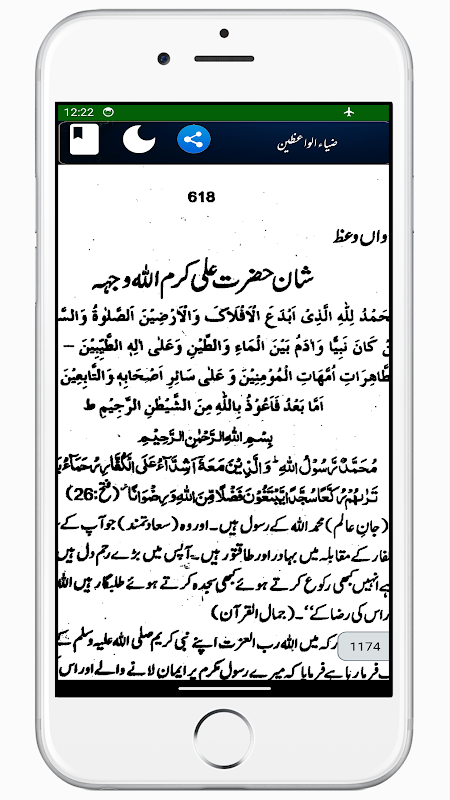 12:22
ضیاء الواعظین
618
واں وعظ
شان حضرت علی کرم اللہ وجہہ
حَمْدُ لِلّٰهِ الَّذِیْ اَبْدَعَ الْاَفْلَاکَ وَالْاَرْضِیْنَ اَلصَّلٰوةُ وَالسَّ
کَانَ نَبِیًّا وَاٰدَمُ بَیْنَ الْمَاءِ وَالطِّیْنِ وَعَلٰی اٰلِهِ الطَّیِّبِیْنَ –
طَّاهِرَاتِ اُمَّهَاتِ الْمُوْمِنِیْنَ وَ عَلٰی سَائِرِ اَصْحَابِهٖ وَالتَّابِعِیْنَ
اَمَّا بَعْدُ فَاَعُوْذُ بِاللّٰهِ مِنَ الشَّیْطٰنِ الرَّجِیْمِ ط
بِسْمِ اللّٰهِ الرَّحْمٰنِ الرَّحِیْمِ
مُحَمَّدٌ رَّسُوْلُ اللّٰهِ وَالَّذِیْنَ مَعَهٗ اَشِدَّآءُ عَلَی الْکُفَّارِ رُحَمَآءُ بَ
تَرٰىهُمْ رُکَّعًا سُجَّدًا یَّبْتَغُوْنَ فَضْلًا مِّنَ اللّٰهِ وَرِضْوَانًا (فتح:26)
(جانِ عالم) محمد اللہ کے رسول ہیں۔ اور وہ (سعادتمند) جو آپ کے
فار کے مقابلہ میں بہادر اور طاقتور ہیں۔ آپس میں بڑے رحم دل ہیں
ہے انہیں کبھی رکوع کرتے ہوئے کبھی سجدہ کرتے ہوئے طلبگار ہیں اللہ
اور اس کی رضا کے‘‘۔ (جمال القرآن)
رکہ میں اللہ رب العزت اپنے نبی کریم صلی اللہ علیہ وسلم کے
فرما رہا ہے فرمایا کہ میرے رسول مکرم پر ایمان لانے والے اور اس
1174